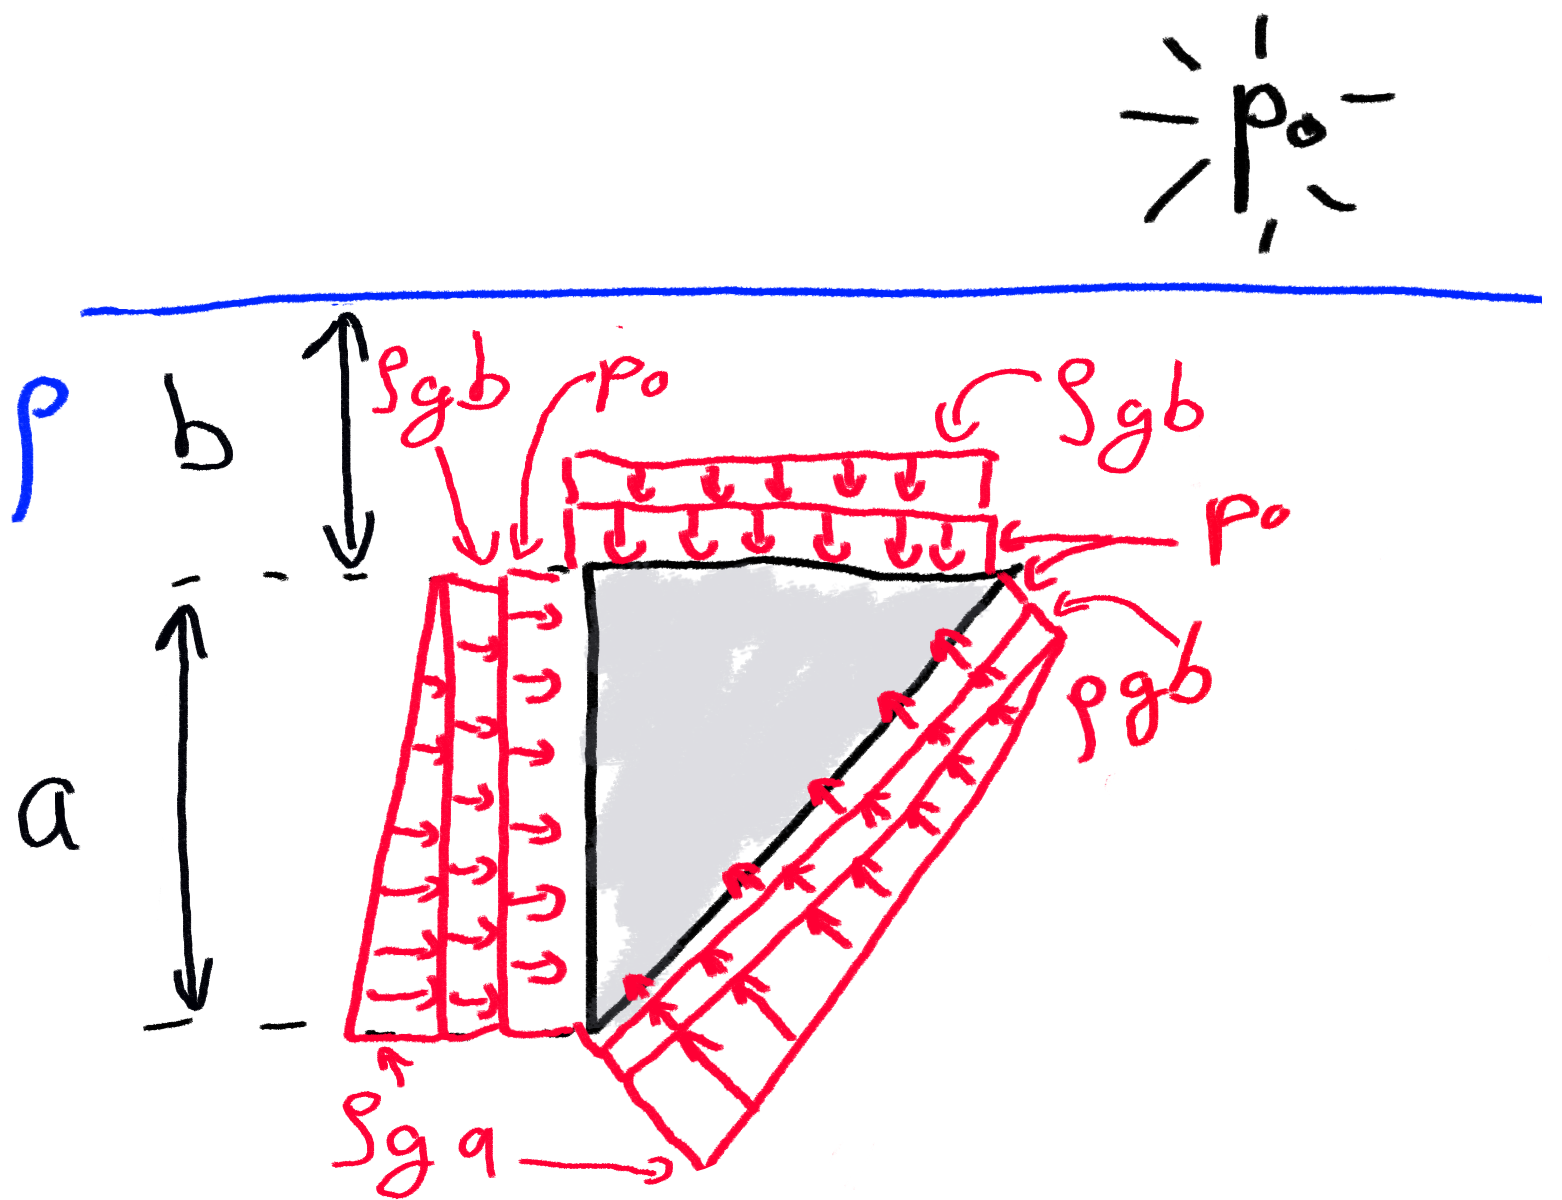 p₀
ρ
b
ρgb
p₀
ρgb
p₀
ρgb
a
ρga